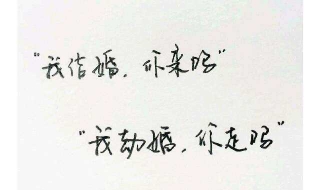 "我结婚，你来吗"
"我劫婚，你走吗"